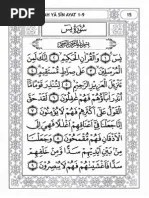 AH YĀ SĪN AYAT 1-9
15
سُورَةُ يٰسٓ
بِسْمِ اللهِ الرَّحْمٰنِ الرَّحِيْمِ
يٰسٓ ۝ وَالْقُرْاٰنِ الْحَكِيْمِ ۝ اِنَّكَ لَمِنَ
الْمُرْسَلِيْنَ ۝ عَلٰى صِرَاطٍ مُّسْتَقِيْمٍ ۝
تَنْزِيْلَ الْعَزِيْزِ الرَّحِيْمِ ۝ لِتُنْذِرَ
قَوْمًا مَّآ اُنْذِرَ اٰبَآؤُهُمْ فَهُمْ غٰفِلُوْنَ ۝ لَقَدْ
حَقَّ الْقَوْلُ عَلٰٓى اَكْثَرِهِمْ فَهُمْ لَا يُؤْمِنُوْنَ ۝
اِنَّا جَعَلْنَا فِيْٓ اَعْنَاقِهِمْ اَغْلٰلًا فَهِيَ
اِلَى الْاَذْقَانِ فَهُمْ مُّقْمَحُوْنَ ۝ وَجَعَلْنَا
مِنْۢ بَيْنِ اَيْدِيْهِمْ سَدًّا وَّمِنْ خَلْفِهِمْ
سَدًّا فَاَغْشَيْنٰهُمْ فَهُمْ لَا يُبْصِرُوْنَ ۝